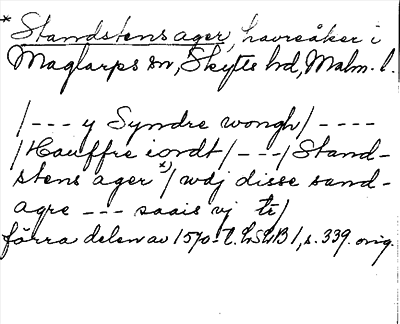 * Standstens ager, havreåker i
Maglarps sn, Skytts hd, Malm. l.
/--- y Syndre wongh/ ----
/Hauffre iordt/ ---/ Stand-
stens ager *)/ wdj disse sand-
agre --- saais vj
förra delen av 1570-t. LSLB 1, s. 339. orig.